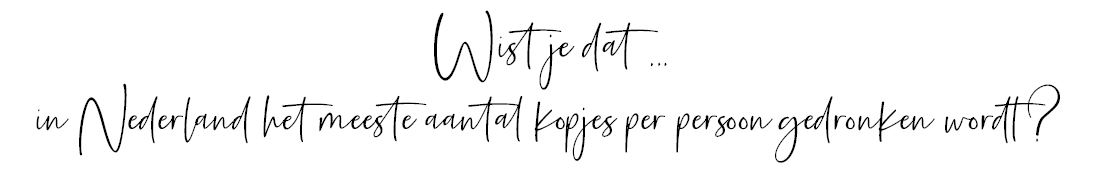 Wist je dat ...
in Nederland het meeste aantal kopjes per persoon gedronken wordt?